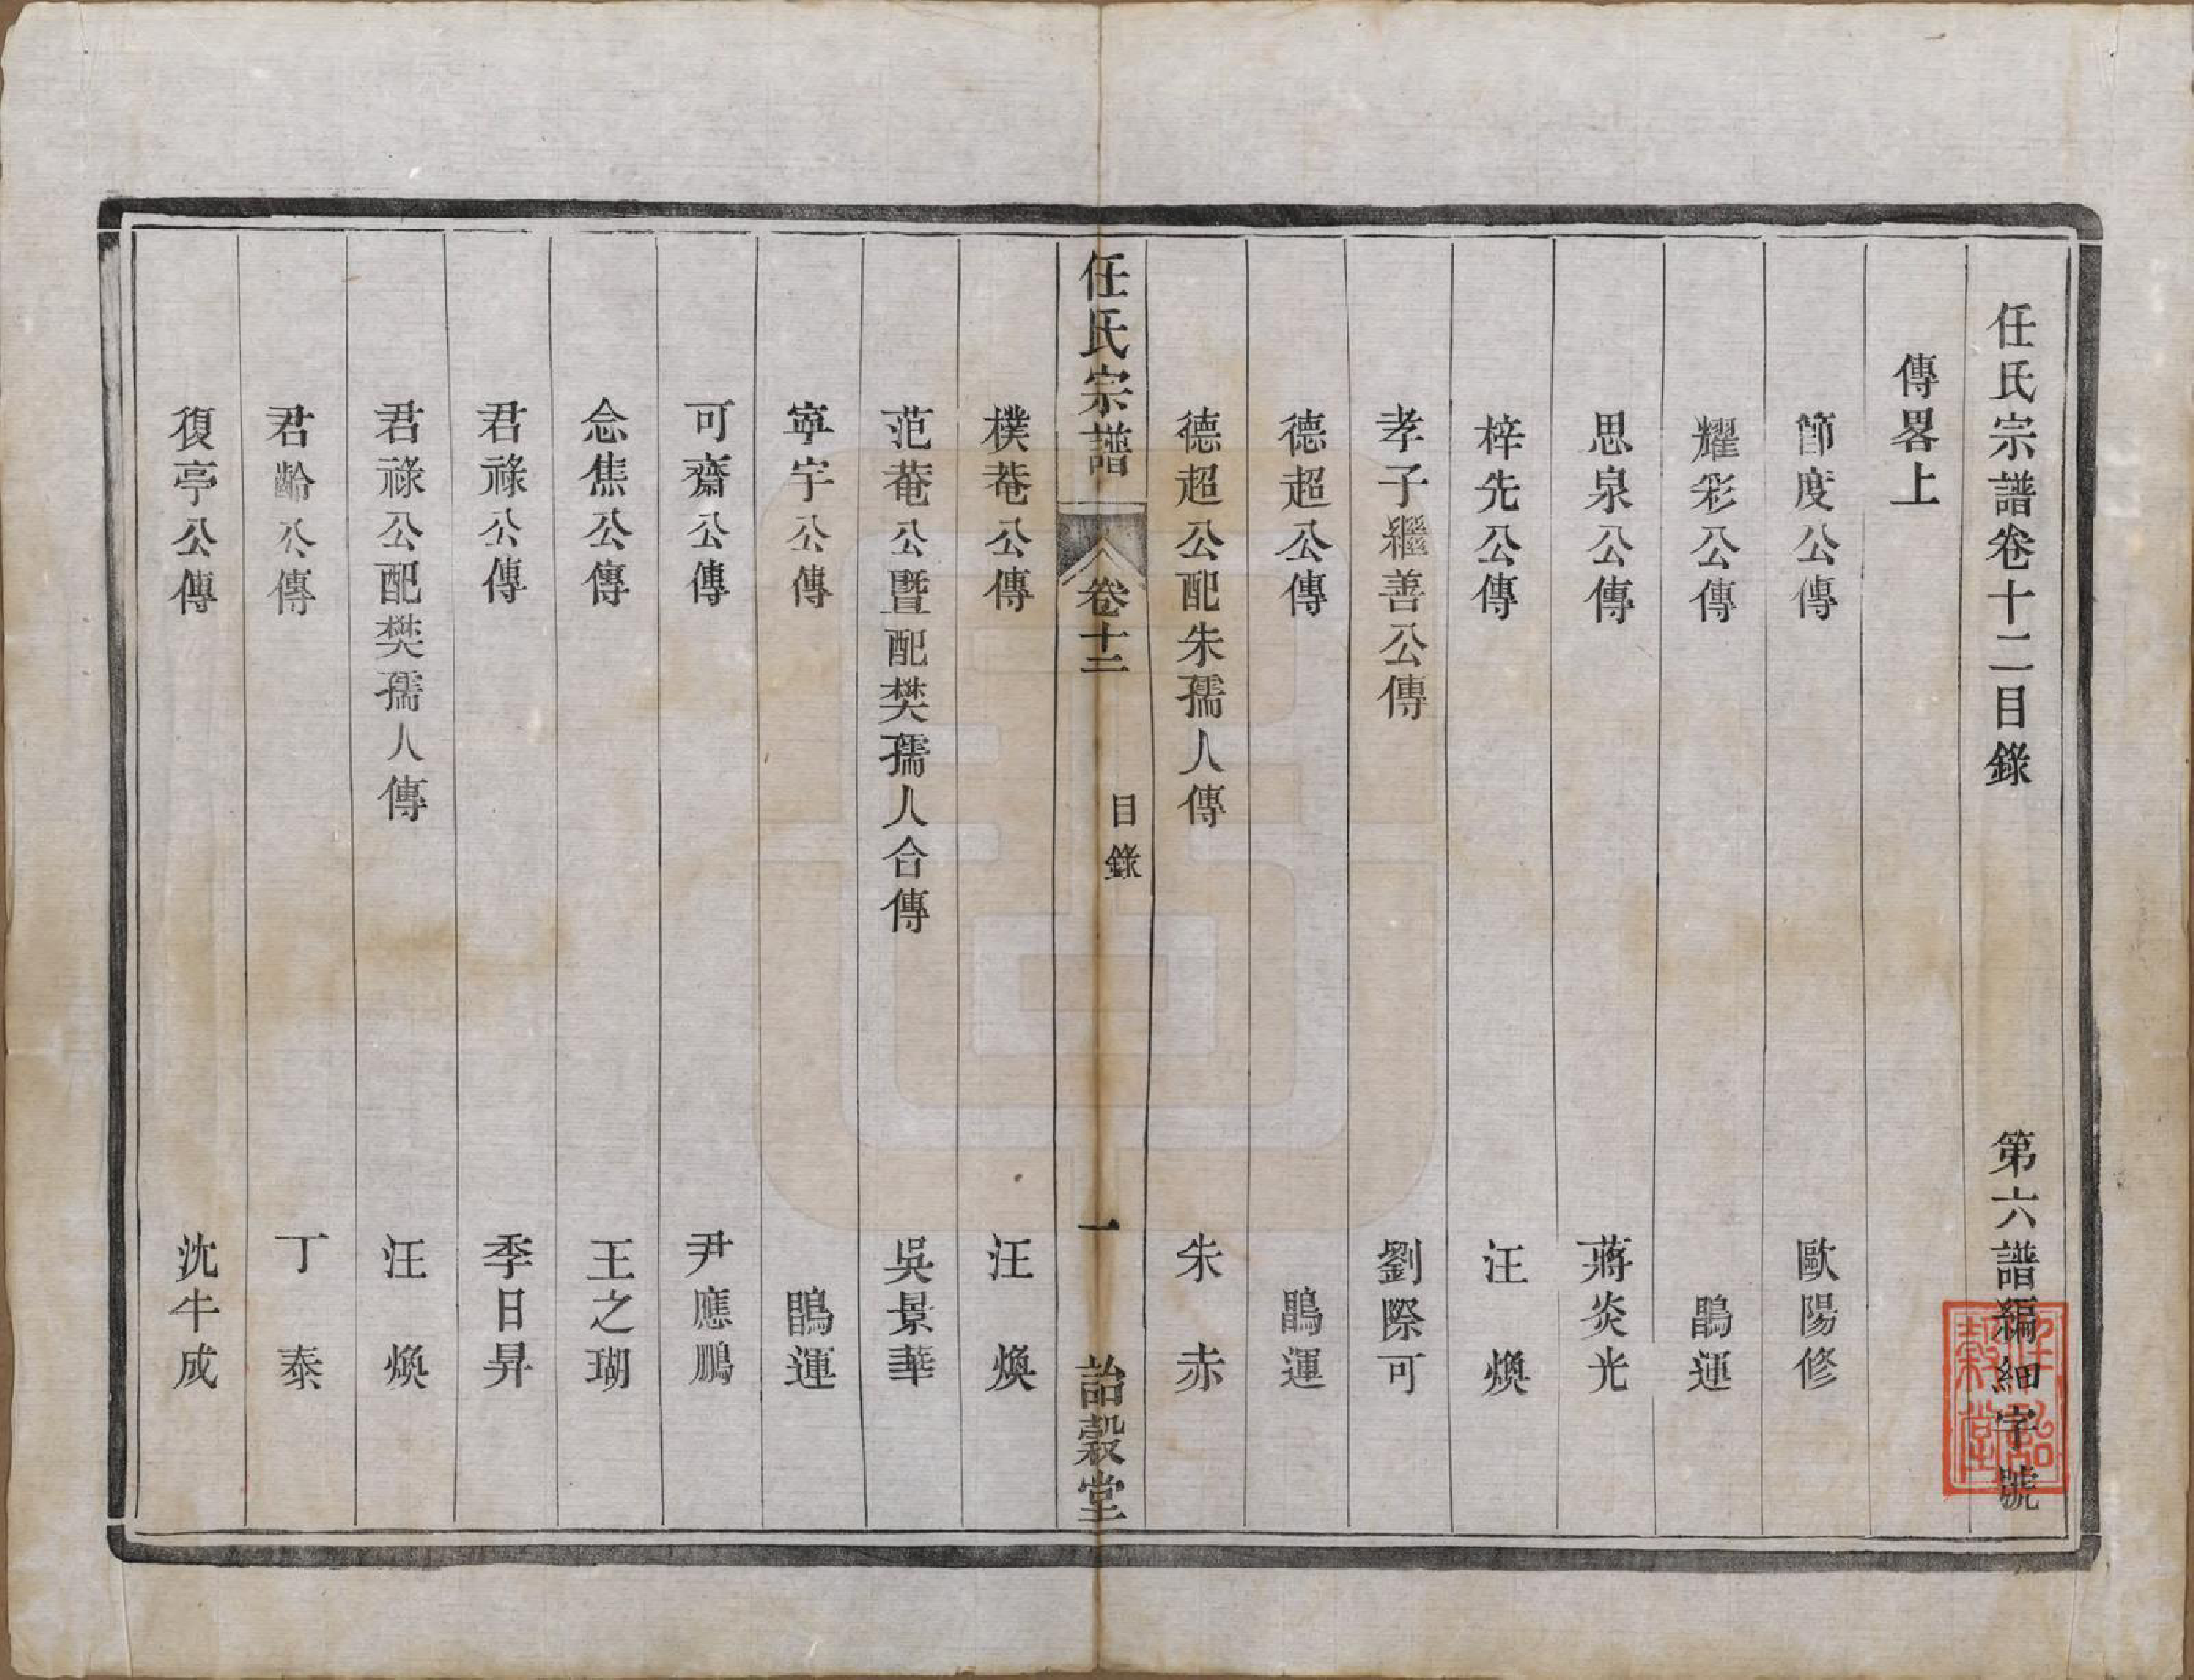 任氏宗譜卷十二目錄　第六譜編細字號
傳畧上
節度公傳　歐陽修
耀彩公傳　鵾運
思泉公傳　蔣炎光
梓先公傳　汪煥
孝子繼善公傳　劉際可
德超公傳　鵾運
德超公配朱孺人傳　朱赤
任氏宗譜　卷十二　目錄　一　詒穀堂
樸菴公傳　汪煥
范菴公暨配樊孺人合傳　吳景華
寧宇公傳　鵾運
可齋公傳　尹應鵬
念焦公傳　王之瑚
君祿公傳　季日昇
君祿公配樊孺人傳　汪煥
君齡公傳　丁泰
復亭公傳　沈牛成